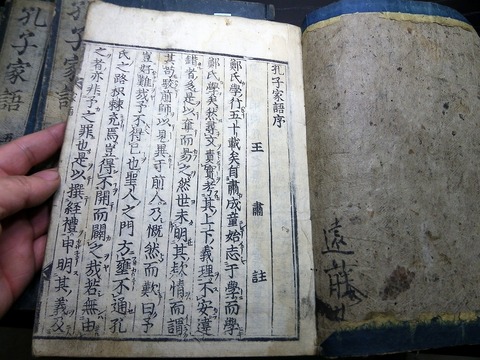 孔子家語序
王肅註
鄭氏學行五十載矣自肅成童始志于學而學
鄭氏學矣然尋文責實考其上下義理不安違
錯者多是以奪而易之然世未明其款情而謂
其苟駁前師以見異于前人乃慨然而歎曰予
豈好難哉予不得已也聖人之門方壅不通孔
氏之路枳棘充焉豈得不開而闢之哉若無由
之者亦非予之罪也是以撰經禮申明其義及
遠藤
孔子家語
孔子家語